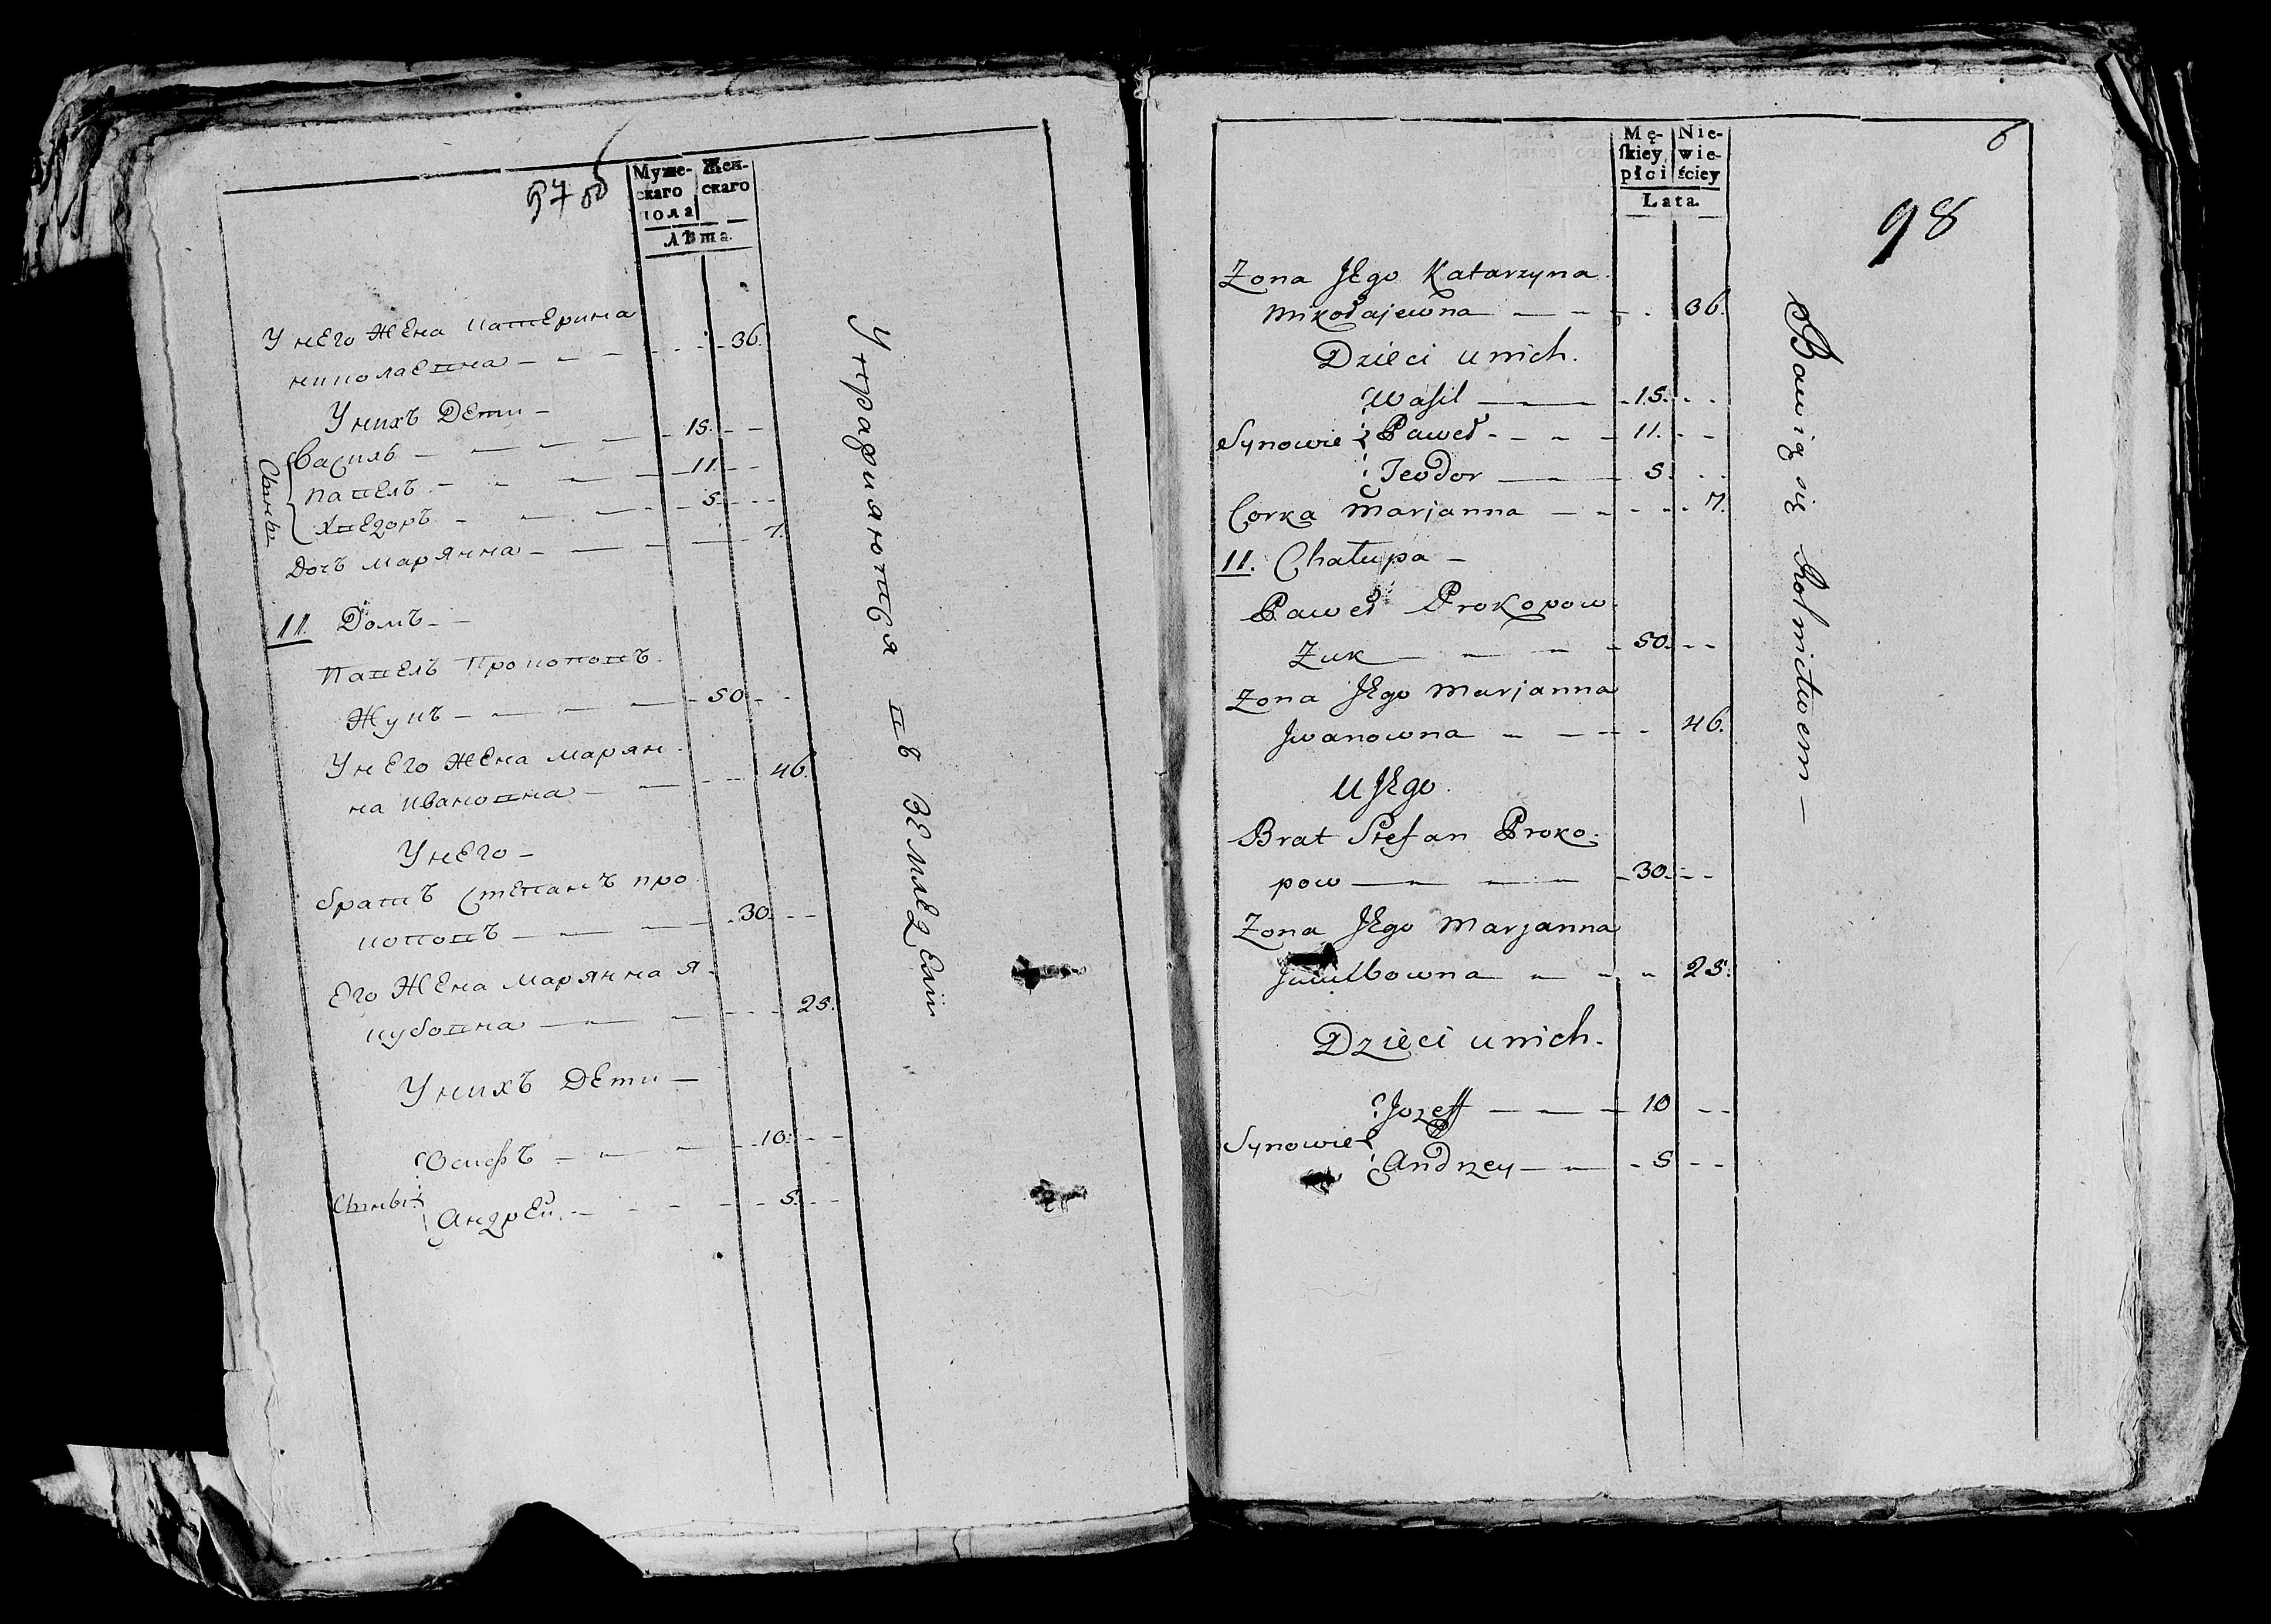 97 об
Муже-
скаго
пола
Жен-
скаго
Лѣта.
У него жена катерина
николаевна 36.
У нихъ Дети
Сыны
Василь 15.
павелъ 11
хведоръ 5
Дочъ марянна 7.
11. Домъ
павелъ Прокоповъ
Жукъ 50
У него жена марян
на ивановна 46.
У него
братъ Степанъ про
коповъ 30
Его жена марянна я
кубовна 25.
У нихъ Дети
Сыны
Осифъ 10
Андрей 5.
Упражняются въ земледелии
6
98
Mę-
skiey
płci
Nie-
wie-
ściey
Lata.
Zona JEgo Katarzyna
Mikołajewna 36.
Dzieci u nich.
Synowie
Wasil 15.
Paweł 11.
Teodor 5.
Corka Marjanna 7.
11. Chałupa
Paweł Prokopow
Zuk 50.
Zona JEgo Marjanna
Jwanowna 46.
U JEgo.
Brat Stefan Proko-
pow 30
Zona JEgo Marjanna
25.
Dzieci u nich.
Synowie
Jozeff 10
Andrzey 5
Bawią się Rolnictwem